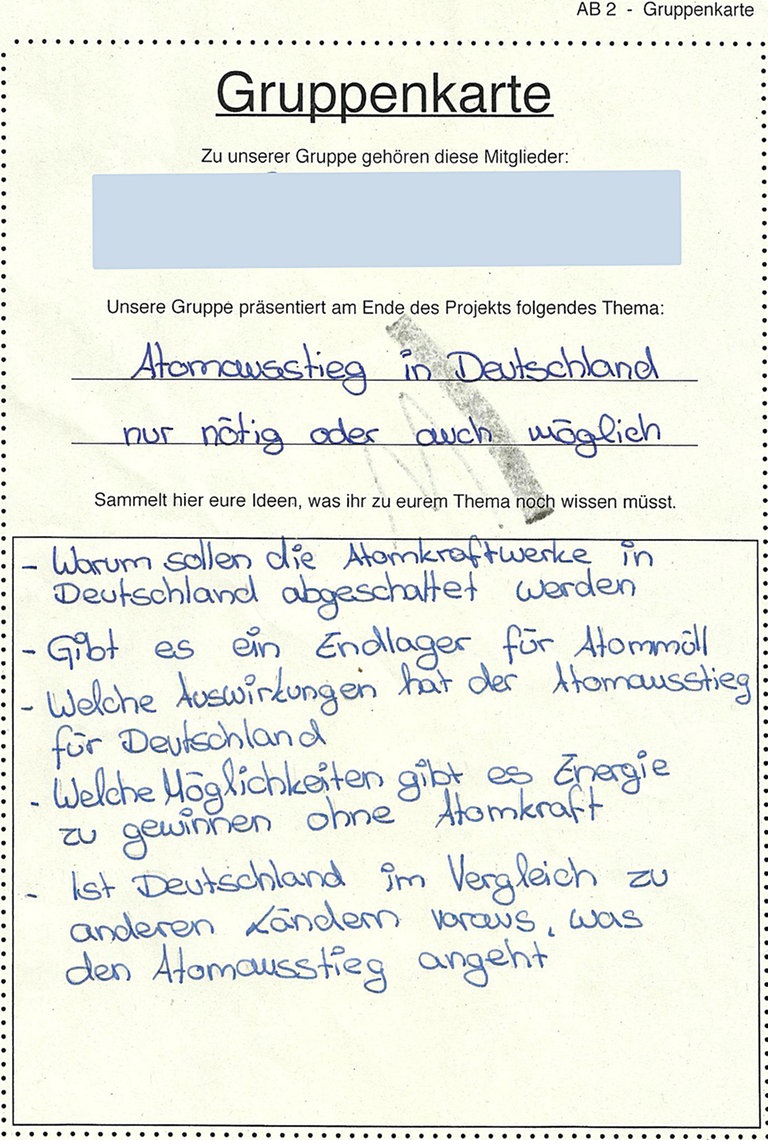 AB 2 - Gruppenkarte
Gruppenkarte
Zu unserer Gruppe gehören diese Mitglieder:
Unsere Gruppe präsentiert am Ende des Projekts folgendes Thema:
Atomausstieg in Deutschland
nur nötig oder auch möglich
Sammelt hier eure Ideen, was ihr zu eurem Thema noch wissen müsst.
- Warum sollen die Atomkraftwerke in
Deutschland abgeschaltet werden
- Gibt es ein Endlager für Atommüll
- Welche Auswirkungen hat der Atomausstieg
für Deutschland
- Welche Möglichkeiten gibt es Energie
zu gewinnen ohne Atomkraft
- Ist Deutschland im Vergleich zu
anderen Ländern voraus, was
den Atomausstieg angeht